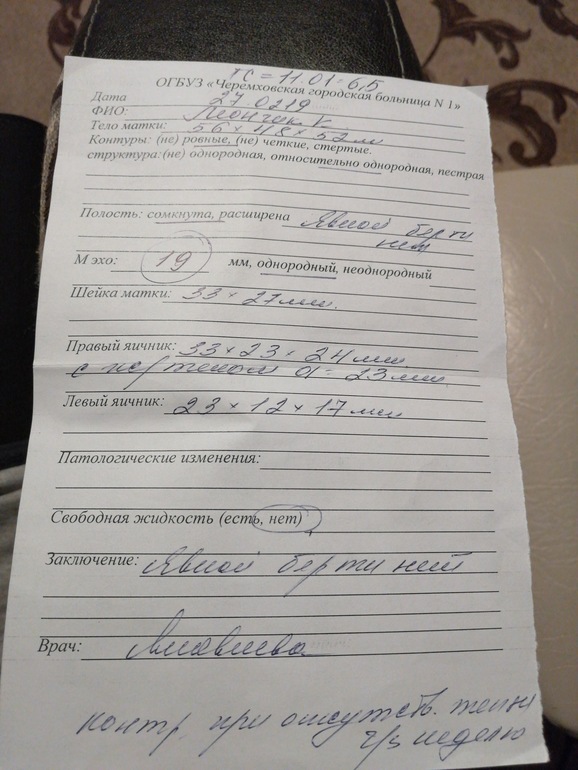 ТС = 11.01 = 6,5
ОГБУЗ «Черемховская городская больница N 1»
Дата 27 02 19
ФИО:
Тело матки: 56 × 48 × 52 мм
Контуры: (не) ровные, (не) четкие, стертые.
структура: (не) однородная, относительно однородная, пестрая
Полость: сомкнута, расширена Явной бер ти
нет
М эхо: 19 мм, однородный, неоднородный
Шейка матки: 33 × 27 мм.
Правый яичник: 33 × 23 × 24 мм
с желтым телом d = 23 мм.
Левый яичник: 23 × 12 × 17 мм
Патологические изменения:
Свободная жидкость (есть, нет)
Заключение: Явной бер ти нет
Врач:
контр. при отсутств. менз
ч/з неделю